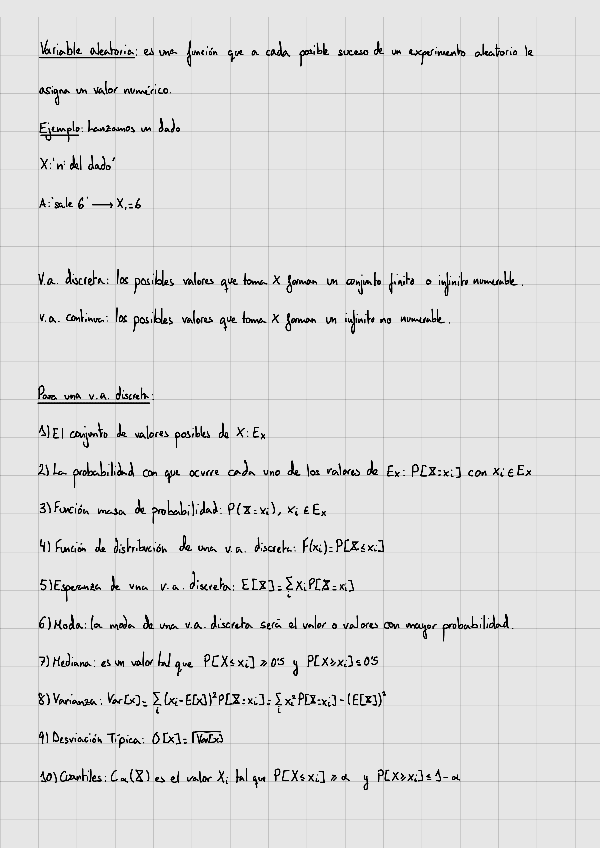 Variable aleatoria: es una función que a cada posible suceso de un experimento aleatorio le
asigna un valor numérico.
Ejemplo: Lanzamos un dado
X:'nº del dado'
A:'sale 6' → X₁=6
V.a. discreta: los posibles valores que toma X forman un conjunto finito o infinito numerable.
v.a. continua: los posibles valores que toma X forman un infinito no numerable.
Para una v.a. discreta:
1) El conjunto de valores posibles de X: Eₓ
2) La probabilidad con que ocurre cada uno de los valores de Eₓ: P[X=xᵢ] con xᵢ ∈ Eₓ
3) Función masa de probabilidad: P(X=xᵢ), xᵢ ∈ Eₓ
4) Función de distribución de una v.a. discreta: F(xᵢ)=P[X≤xᵢ]
5) Esperanza de una v.a. discreta: E[X]=∑ᵢ xᵢ P[X=xᵢ]
6) Moda: la moda de una v.a. discreta será el valor o valores con mayor probabilidad.
7) Mediana: es un valor tal que P[X≤xᵢ] ≥ 0'5 y P[X≥xᵢ] ≤ 0'5
8) Varianza: Var[x]=∑ᵢ (xᵢ-E[x])² P[X=xᵢ]=∑ᵢ xᵢ² P[X=xᵢ]-(E[X])²
9) Desviación Típica: σ[x]=√Var[x]
10) Cuantiles: Cα(X) es el valor Xᵢ tal que P[X≤xᵢ] ≥ α y P[X≥xᵢ] ≤ 1-α